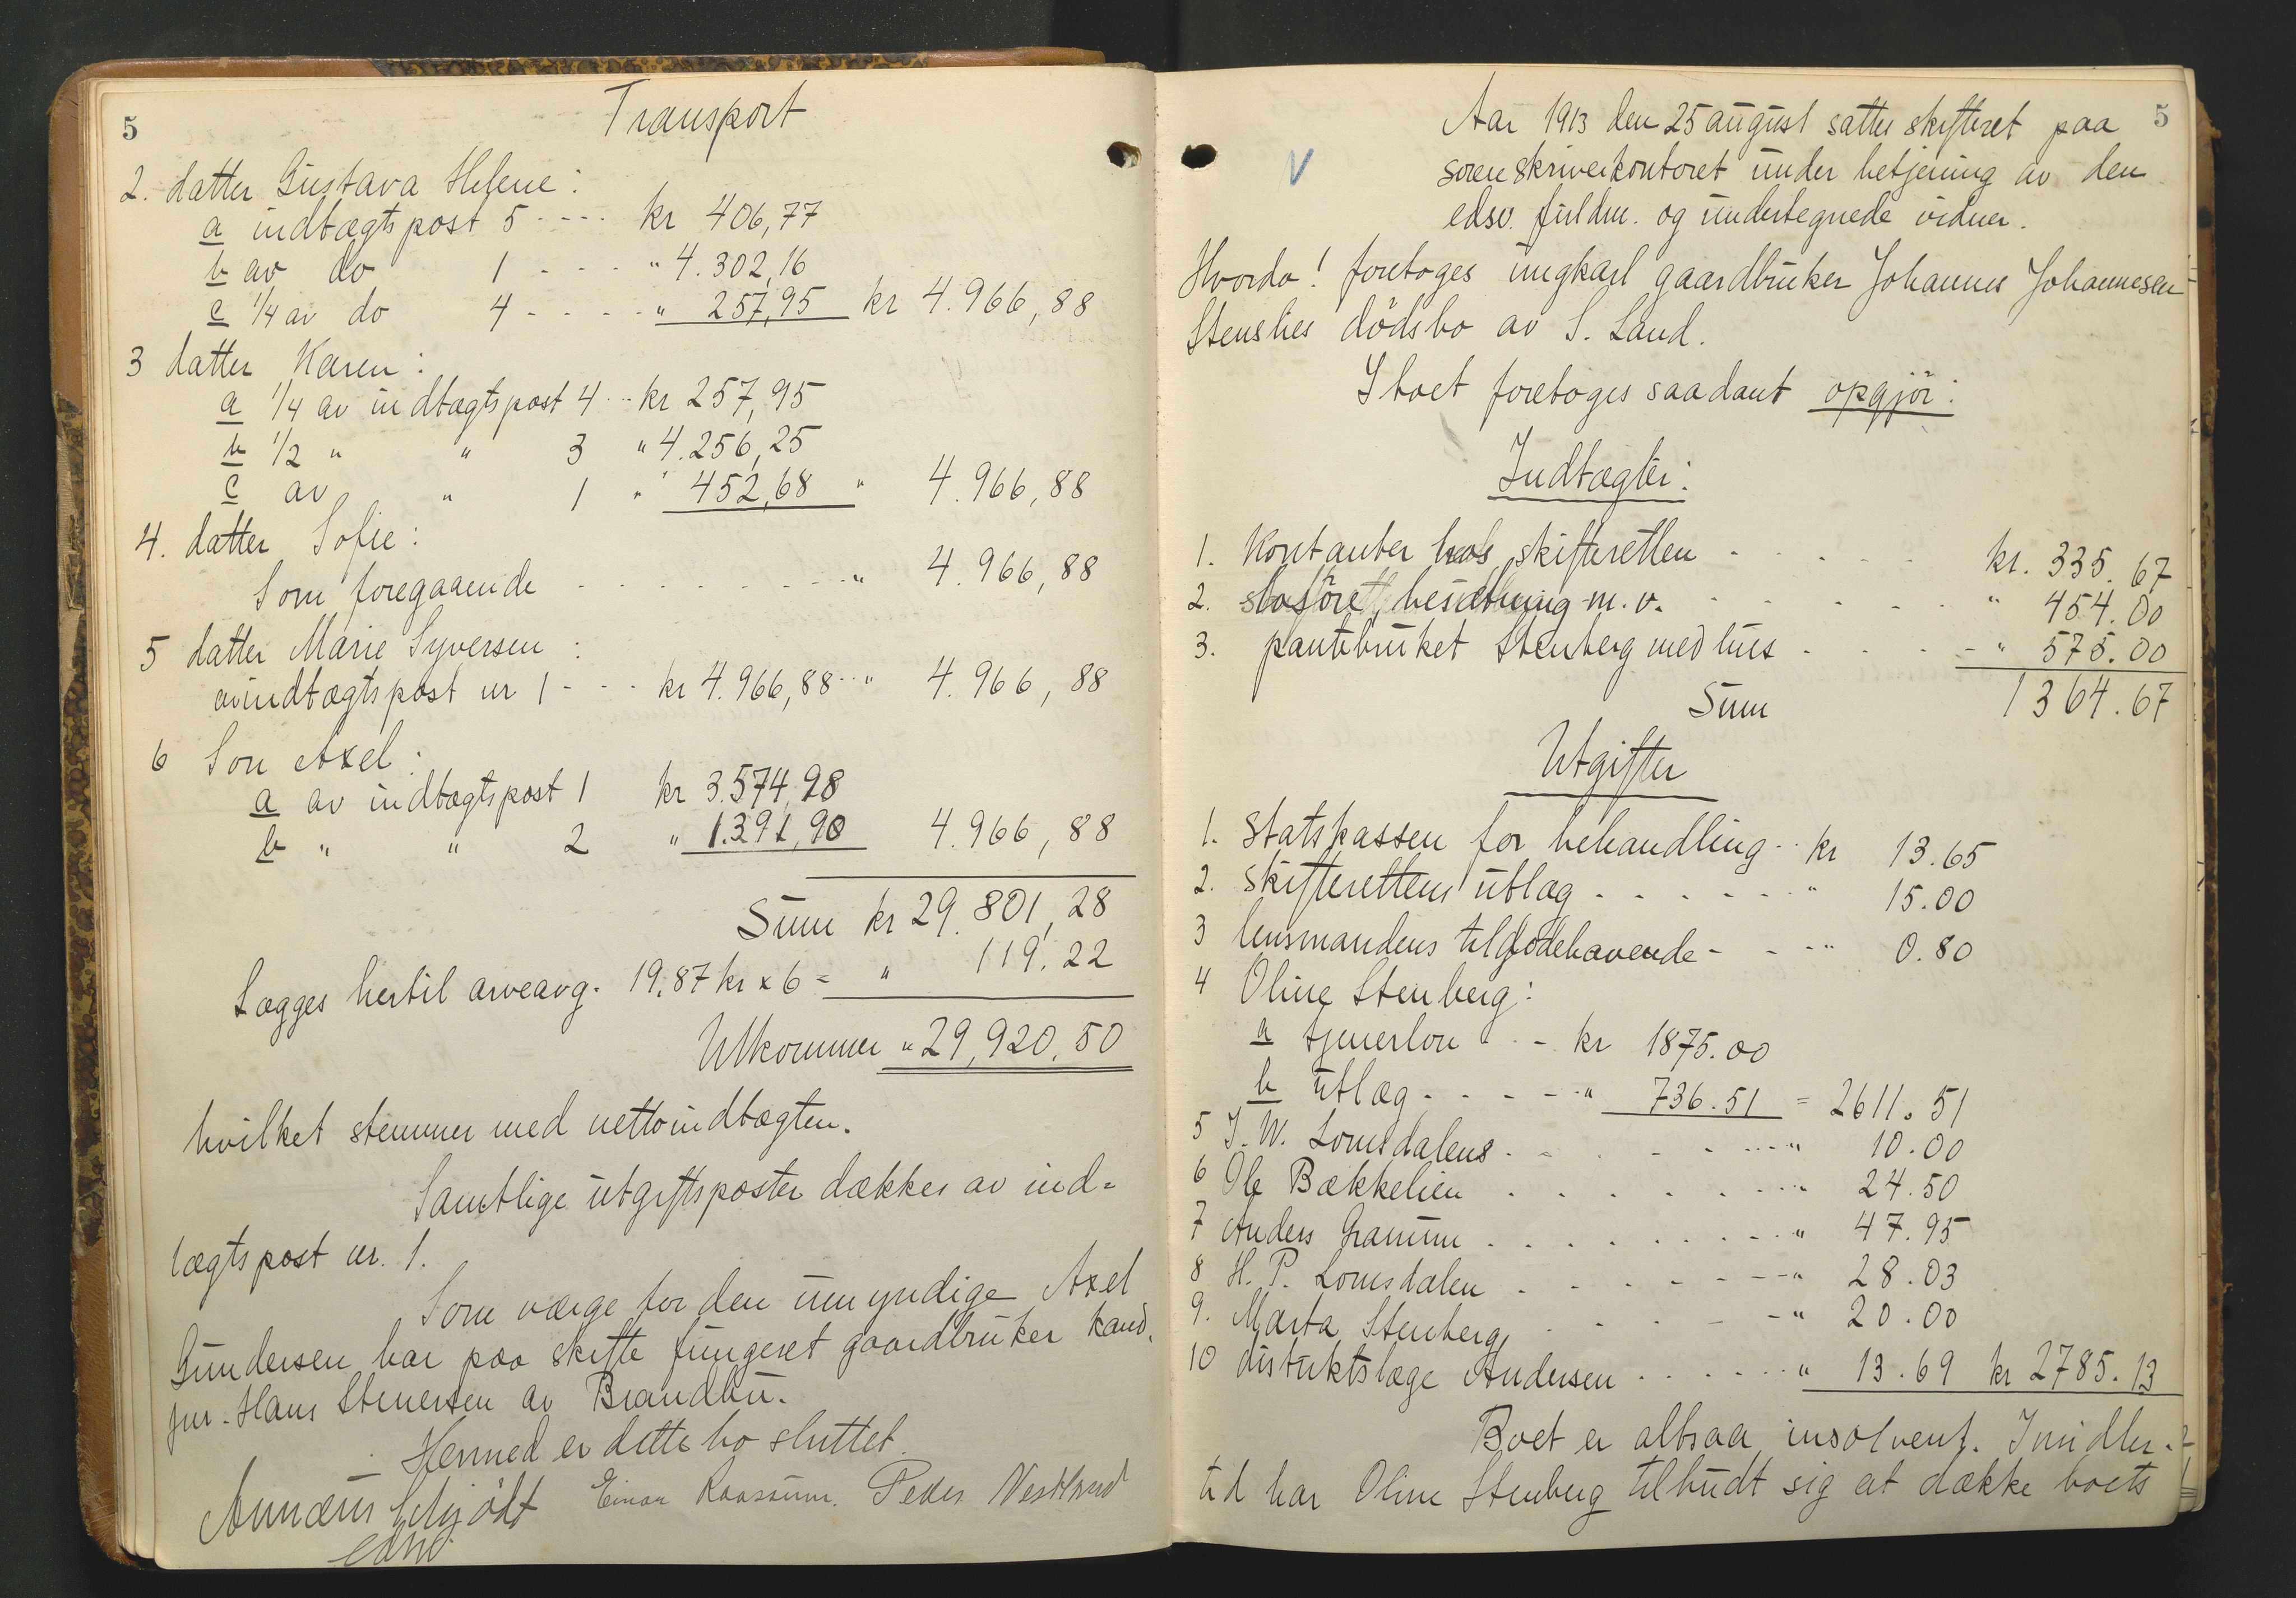 5
Transport
2. datter Gustava Helene:
a indtægtspost 5 - - - - kr 406,77
b av do 1 - - - - " 4.302,16
c 1/4 av do 4 - - - - " 257,95 kr 4.966,88
3 datter Karen:
a 1/4 av indtægtspost 4 - - kr 257,95
b 1/2 " " 3 " 4.256,25
c av " 1 " 452,68 " 4.966,88
4. datter Sofie:
Som foregaaende - - - - - - - - - " 4.966,88
5 datter Marie Syversen:
av indtægtspost nr 1 - - - kr 4.966,88 - - " 4.966,88
6 Søn Axel:
a av indtægtspost 1 kr 3.574,98
b " " 2 " 1.391,90 4.966,88
Sum kr 29.801,28
Lægges hertil arveavg. 19,87 kr x 6 = " 119.22
Utkommer " 29,920.50
hvilket stemmer med nettoindtægten.
Samtlige utgiftsposter dækkes av ind-
tægtspost nr. 1.
Som værge for den umyndige Axel
Gundersen har paa skifte fungeret gaardbruker kand.
jur. Hans Stenersen av Brandbu.
Hermed er dette bo sluttet.
Annæus Schjödt Einar Raassum. Peder Vestlund
edsv.
5
V
Aar 1913 den 25 august sattes skifteret paa
sorenskriverkontoret under betjening av den
edsv. fuldm. og undertegnede vidner.
Hvorda! foretoges ungkarl gaardbruker Johannes Johannesen
Stenslies dödsbo av S. Land.
I boet foretoges saadant opgjör:
Indtægter:
1. Kontanter hos skifteretten - - - - - kr. 335.67
2. Løsöret, besætning m.v. - - - - - " 454.00
3. pantebruket Stenberg med hus - - - - " 575.00
Sum 1364.67
Utgifter
1. Statskassen for behandling - - kr 13.65
2. Skifterettens utlæg - - - - - - " 15.00
3 lensmandens tilgodehavende - - - " 0.80
4 Oline Stenberg:
a tjenerløn - - kr 1875.00
b utlæg - - - - " 736.51 = 2611.51
5 J. W. Lomsdalens - - - - - - " 10.00
6 Ole Bækkelien - - - - - - - " 24.50
7 Anders Granum - - - - - - - " 47.95
8 H. P. Lomsdalen - - - - - - " 28.03
9. Marta Stenberg - - - - - " 20.00
10 distriktslæge Andersen - - - - - " 13.69 kr 2785.13
Boet er altsaa insolvent. Imidler-
tid har Oline Stenberg tilbudt sig at dække boets